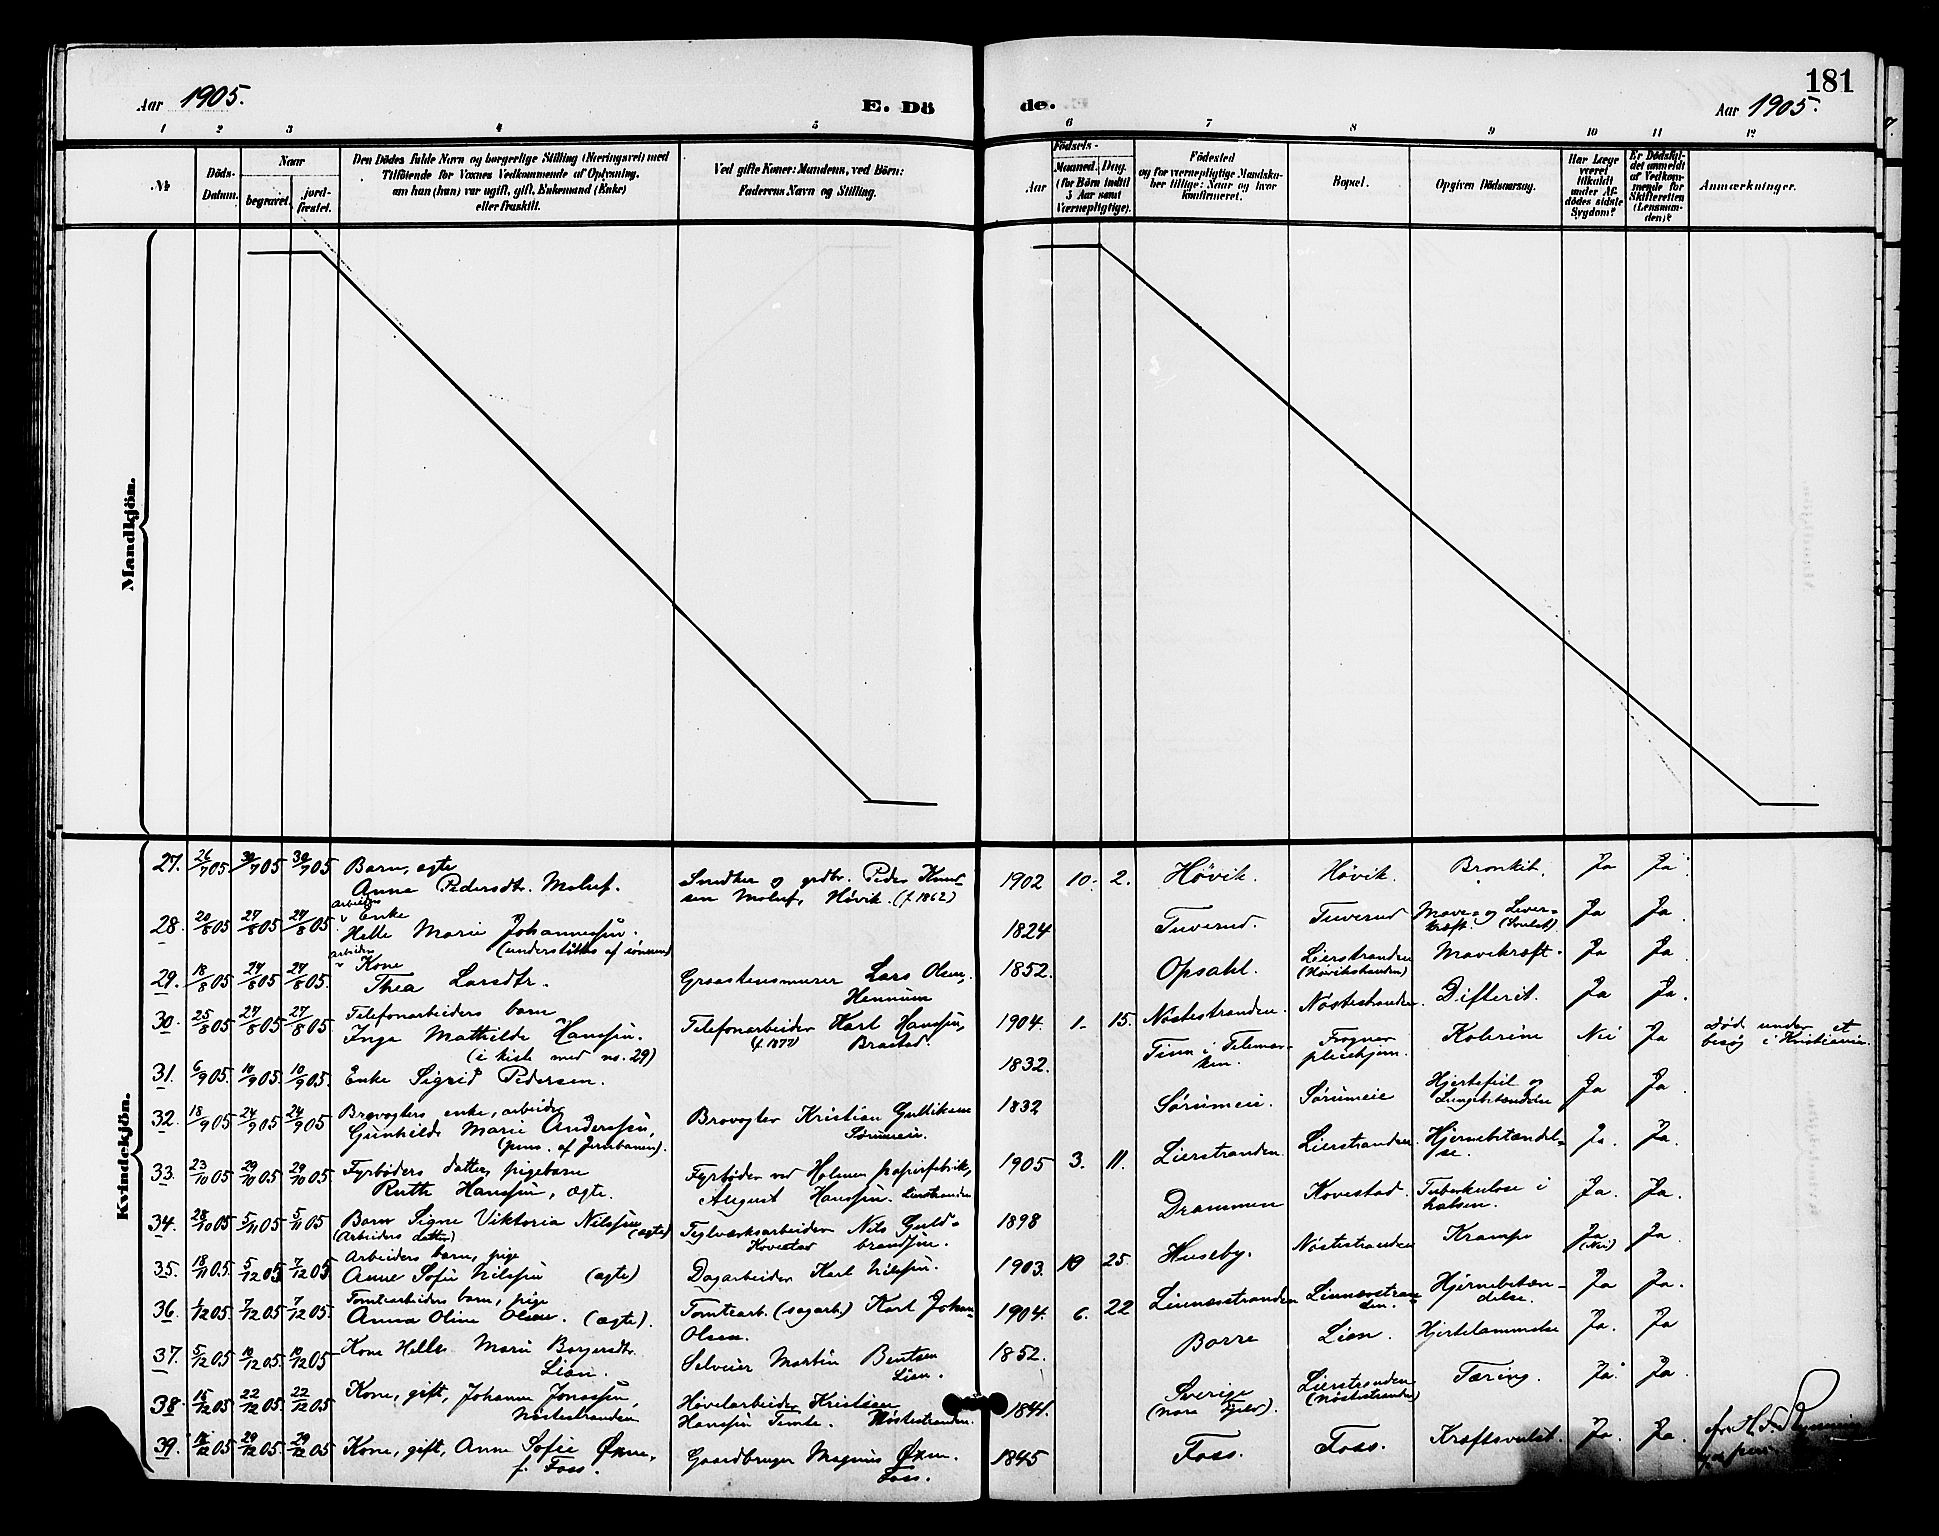 181
Aar 1905.
E. Dö
de.
Aar 1905.
1 2 3 4 5 6 7 8 9 10 11 12
№
Döds-
Datum.
Naar
begravet.
jord-
fæstet.
Den Dödes fulde Navn og borgerlige Stilling (Næringsvei) med
Tilföiende for Voxnes Vedkommende af Oplysning,
om han (hun) var ugift, gift, Enkemand (Enke)
eller fraskilt.
Ved gifte Koner: Mandens, ved Börn:
Faderens Navn og Stilling.
Födsels-
Aar
Maaned. Dag.
(for Börn indtil
5 Aar samt
Værnepligtige).
Födested
og for værnepligtige Mandska-
ber tillige: Naar og hvor
konfirmeret.
Bopæl.
Opgiven Dödsaarsag.
Har Læge
været
tilkaldt
under Af-
dödes sidste
Sygdom?
Er Dödsfal-
det anmeldt
af Vedkom-
mende for
Skifteretten
(Lensman-
den)?
Anmærkninger.
Mandkjön.
Kvindekjön.
27. 26/7 05 30/7 05 30/7 05 Barn, ægte
Anna Pedersdtr. Moluf.
Snedker og grdbr. Peder Knud-
sen Moluf, Høvik. (f. 1862)
1902 10. 2. Høvik. Høvik. Bronkit. Ja Ja
28. 20/8 05 27/8 05 27/8 05 Enke
Helle Marie Johannessen.
(understøttes af sønnen)
1824 Tuverud. Tuverud Mave- og Lever-
kræft. (Svulst). Ja Ja.
29. 18/8 05 27/8 05 27/8 05. Kone
Thea Larsdtr.
Graastensmurer Lars Olsen,
Hennum
1852. Opsahl. Lierstranden
(Høvikstranden) Mavekræft. Ja Ja.
30. 25/8 05 27/8 05 27/8 05 Telefonarbeiders barn
Inga Mathilde Hanssen,
(i kiste med no. 29)
Telefonarbeider Karl Hanssen,
(f. 1877) Brastad.
1904. 1. 15. Nøstestranden. Nøstestranden. Difterit. Ja Ja.
31. 6/9 05. 10/9 05. 10/9 05. Enke Sigrid Pedersen.
1832. Tinn i Telemar-
ken. Frogner
pleiehjem. Kolerine Nei Ja død under et
besøg i Kristiania.
32. 18/9 05 24/9 05 24/9 05 Brovogters enke, arbeider
Gunhilde Marie Anderssen,
(pens. af Jernbanen).
Brovogter Kristian Gulliksen
Sørumeie.
1832 Sørumeie. Sørumeie Hjertefeil og
Lungebetændelse Ja Ja.
33. 23/10 05 29/10 05 29/10 05. Fyrbøders datter, pigebarn
Ruth Hanssen, ægte.
Fyrbøder ved Holmen papirfabrik,
August Hanssen. Lierstranden
1905 3. 11. Lierstranden. Lierstranden. Hjernebetændel-
se. Ja. Ja.
34. 28/10 05 5/11 05 5/11 05 Barn Signe Viktoria Nilssen
(Arbeiders datter) (ægte)
Teglværksarbeider Nils Guld-
Kovestad brandsen.
1898 Drammen Kovestad. Tuberkulose i
halsen. Ja. Ja.
35. 18/11 05. 5/12 05 7/12 05 Arbeiders barn, pige
Anne Sofie Nilssen (ægte)
Dagarbeider Karl Nilssen.
1903. 10 25. Huseby. Nøstestranden Krampe Ja
(Nei) Ja.
36. 1/12 05 7/12 05 7/12 05 Tomtearbeiders barn, pige
Anna Oline Olsen. (ægte).
Tomtearb. (sagarb.) Karl Johan
Olsen.
1904. 6. 22 Linnesstranden Linnesstran-
den. Hjernebetæn-
delse. Ja Ja.
37. 5/12 05 10/12 05. 10/12 05 Kone Helle Marie Borgersdtr.
Lian.
Selveier Martin Bentsen
Lian.
1852. Borre Lian. Hjertelammelse Ja. Ja
38. 15/12 05 22/12 05. 22/12 05 Kone, gift, Johanne Jonassen,
Nøstestranden
Høvelarbeider Kristian
Hanssen Tomte. Nøstestranden.
1841. Sverige Lierstranden
(Nøstestranden) Tæring. Ja. Ja.
39. 16/12 05 29/12 05. 29/12 05 Kone, gift, Anne Sofie Økern,
f. Foss.
Gaardbruger Magnus Økern.
Foss.
1845 Foss. Foss. Kræftsvulst. Ja. Ja.